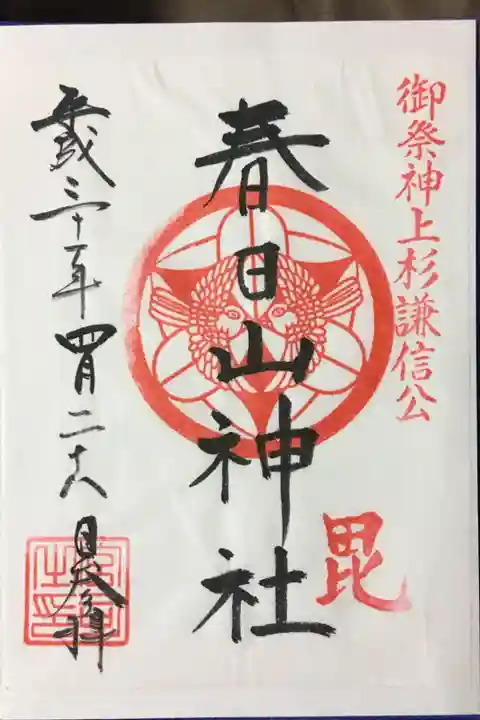 御祭神上杉謙信公
毘
春日山神社
平成三十一年四月二十八日奉拝